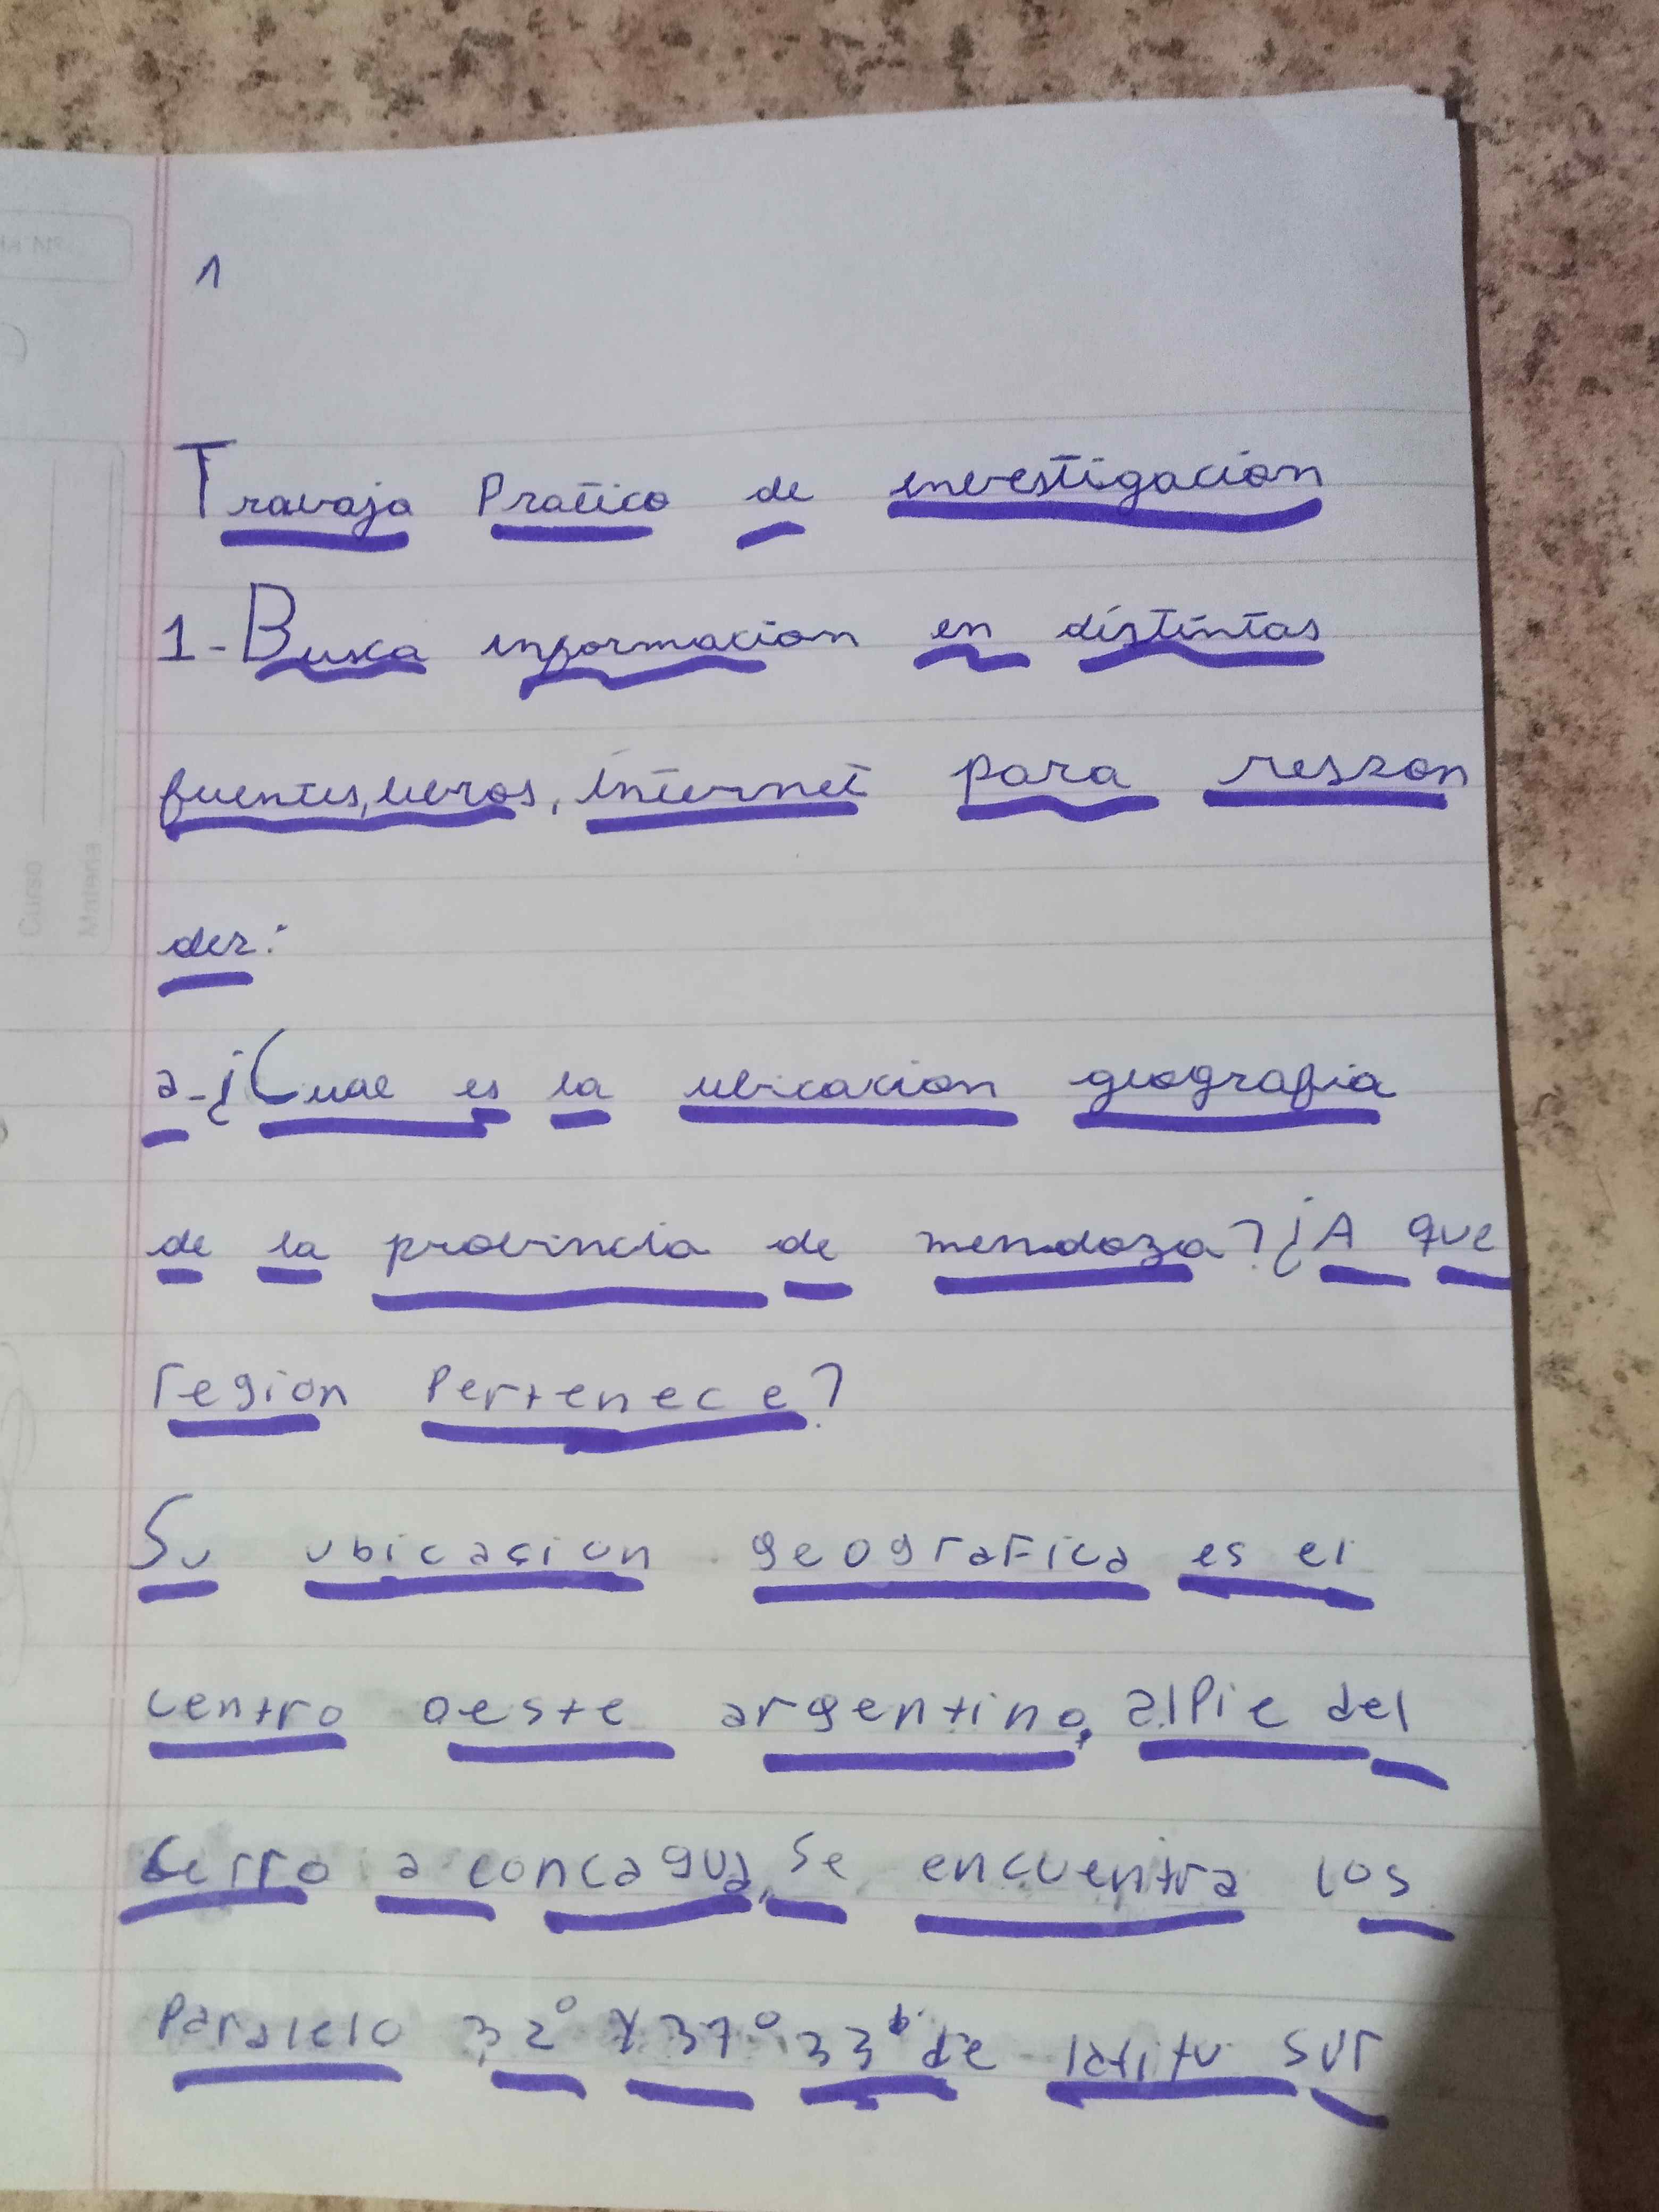 1
Travajo Pratico de investigacion
1-Busca informacion en distintas
fuentes, libros, internet para respon
der:
a-¿Cual es la ubicacion geografia
de la provincia de mendoza? ¿A que
region Pertenece?
Su ubicacion geografica es el
centro oeste argentino, al Pie del
cerro a concagua, se encuentra los
Paralelo 32° y 37° 33' de latitu sur
Curso
Materia